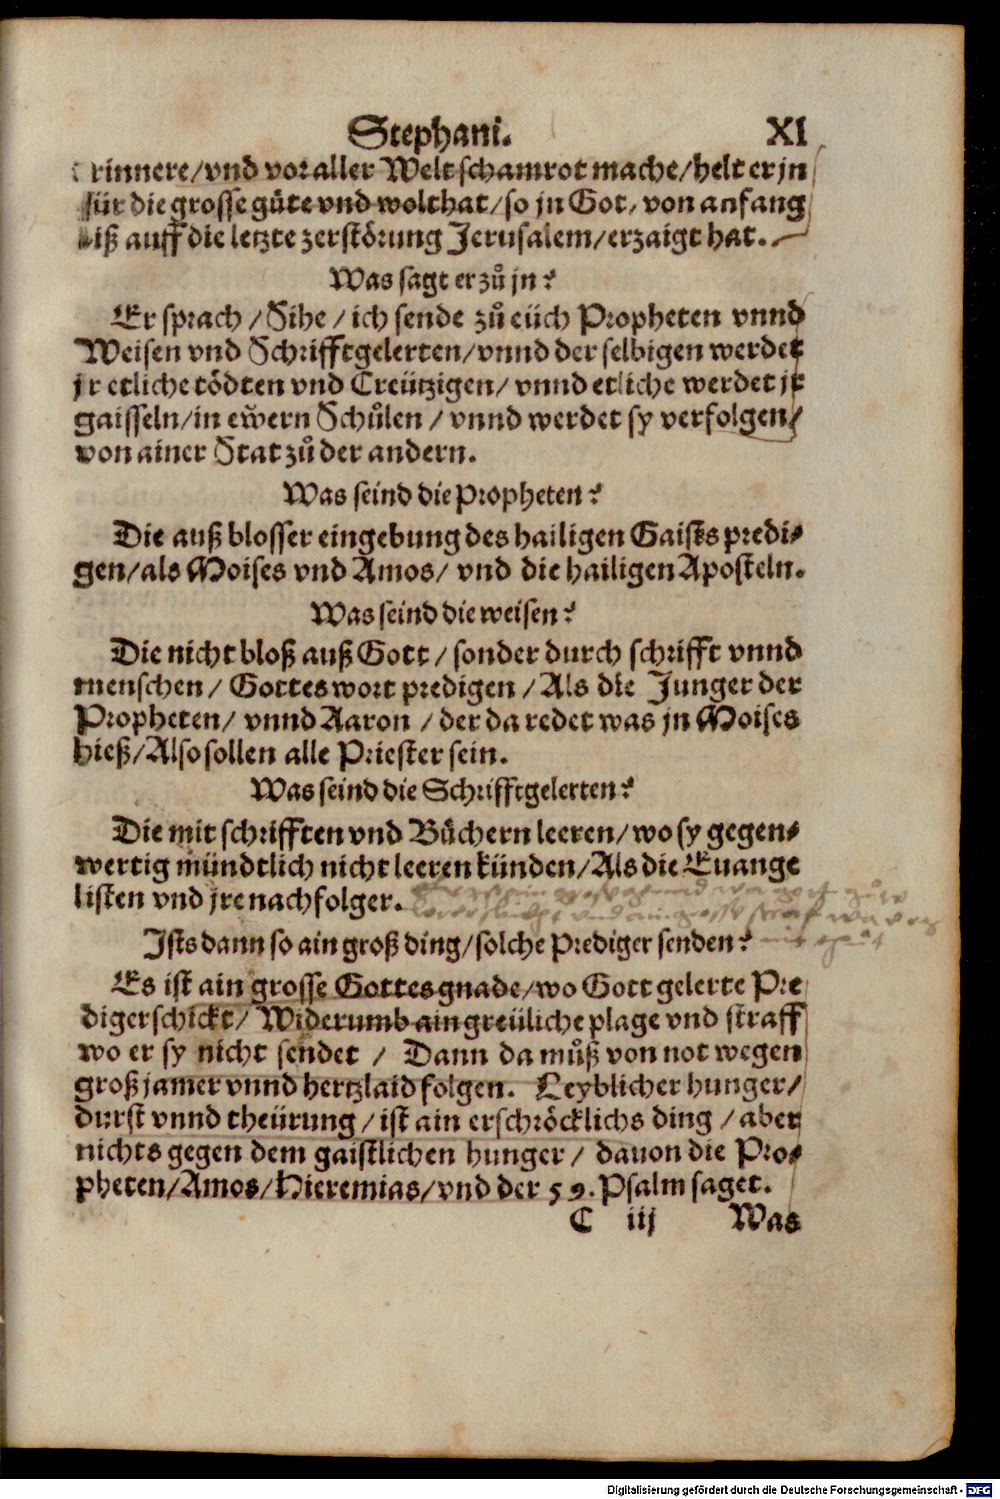 Stephani. XI
rinnere/vnd vor aller Welt schamrot mache/helt er jn
für die grosse güte vnd wolthat/so jn Got, von anfang
biß auff die letzte zerstörung Jerusalem/erzaigt hat.
Was sagt er zů jn?
Er sprach/Sihe/ich sende zů eüch Propheten vnnd
Weisen vnd Schrifftgelerten/vnnd der selbigen werdet
jr etliche tödten vnd Creützigen/vnnd etliche werdet jr
gaisseln/in ewern Schůlen/vnnd werdet sy verfolgen/
von ainer Stat zů der andern.
Was seind die Propheten?
Die auß blosser eingebung des hailigen Gaists predi⸗
gen/als Moises vnd Amos/vnd die hailigen Aposteln.
Was seind die weisen?
Die nicht bloß auß Gott/sonder durch schrifft vnnd
menschen/Gottes wort predigen/Als die Junger der
Propheten/vnnd Aaron/der da redet was jn Moises
hieß/Also sollen alle Priester sein.
Was seind die Schrifftgelerten?
Die mit schrifften vnd Büchern leeren/wo sy gegen⸗
wertig mündtlich nicht leeren künden/Als die Euange
listen vnd jre nachfolger.
Ists dann so ain groß ding/solche Prediger senden?
Es ist ain grosse Gottes gnade/wo Gott gelerte Pre
diger schickt/Widerumb ain greüliche plage vnd straff
wo er sy nicht sendet/Dann da můß von not wegen
groß jamer vnnd hertzlaid folgen. Leyblicher hunger/
durst vnnd theürung/ist ain erschröcklichs ding/aber
nichts gegen dem gaistlichen hunger/dauon die Pro⸗
pheten/Amos/Hieremias/vnd der 59. Psalm saget.
C iij Was
Digitalisierung gefördert durch die Deutsche Forschungsgemeinschaft - DFG